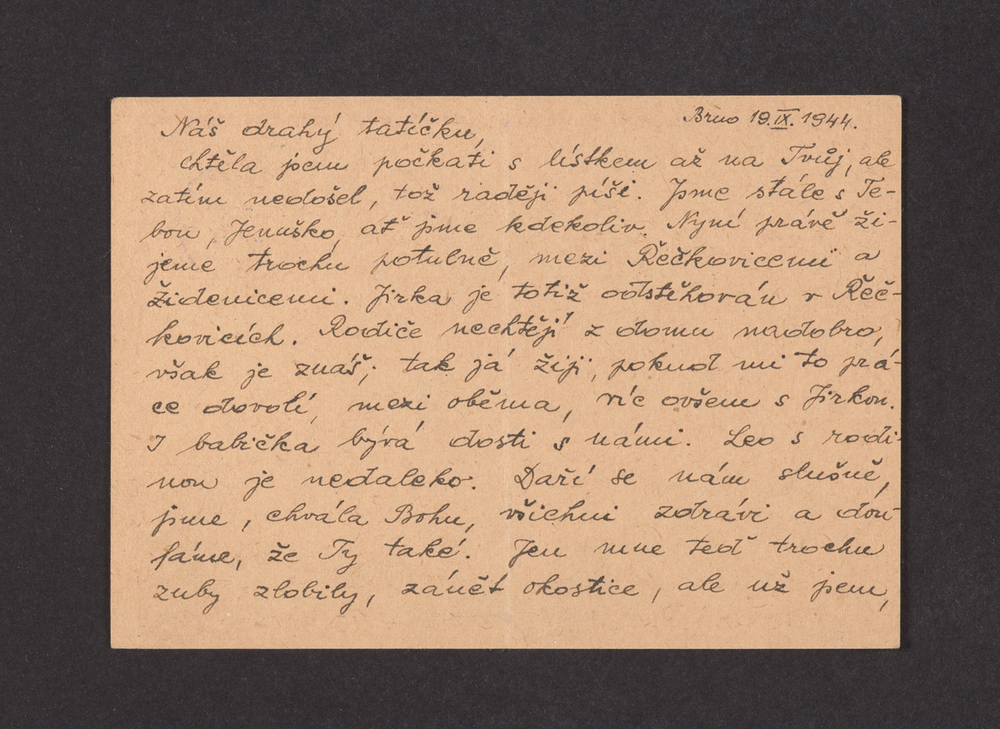 Brno 19.IX.1944.
Náš drahý tatíčku,
chtěla jsem počkati s lístkem až na Tvůj, ale
zatím nedošel, tož raději píši. Jsme stále s Te-
bou, Jenuško, ať jsme kdekoliv. Nyní právě ži-
jeme trochu potulně, mezi Řečkovicemi a
Židenicemi. Jirka je totiž odstěhován v Řeč-
kovicích. Rodiče nechtějí z domu nadobro,
však je znáš; tak já žiji, pokud mi to prá-
ce dovolí, mezi oběma, víc ovšem s Jirkou.
I babička bývá dosti s námi. Leo s rodi-
nou je nedaleko. Daří se nám slušně,
jsme, chvála Bohu, všichni zdrávi a dou-
fáme, že Ty také. Jen mne teď trochu
zuby zlobily, zánět okostice, ale už jsem,